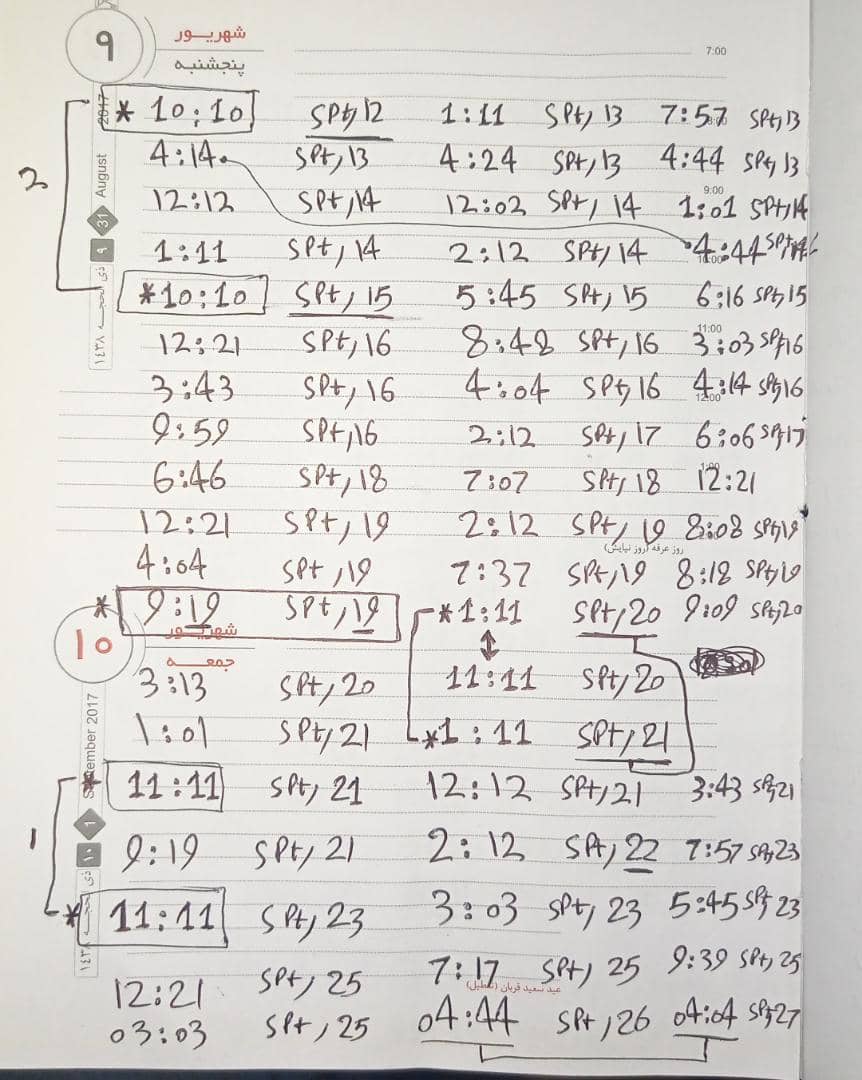 ۹ شهریور
پنجشنبه
7:00
2017 * 10:10 Spt, 12 1:11 Spt, 13 7:57 Spt, 13
4:14 Spt, 13 4:24 Spt, 13 4:44 Spt, 13
2 31 August
9:00
12:12 Spt, 14 12:02 Spt, 14 1:01 Spt, 14
1:11 Spt, 14 2:12 Spt, 14 4:44 Spt,
۹ ذی الحجه ۱٤۳۸
* 10:10 Spt, 15 5:45 Spt, 15 6:16 Spt, 15
11:00
12:21 Spt, 16 8:48 Spt, 16 3:03 Spt, 16
3:43 Spt, 16 4:04 Spt, 16 4:14 Spt, 16
12:00
9:59 Spt, 16 2:12 Spt, 17 6:06 Spt, 17
6:46 Spt, 18 7:07 Spt, 18 12:21
12:21 Spt, 19 2:12 Spt, 19 8:08 Spt, 19
روز عرفه (روز نیایش)
4:04 Spt, 19 7:37 Spt, 19 8:18 Spt, 19
* 9:19 Spt, 19 * 1:11 Spt, 20 9:09 Spt, 20
۱۰ شهریور
جمعه
3:13 Spt, 20 11:11 Spt, 20
1:01 Spt, 21 * 1:11 Spt, 21
September 2017
* 11:11 Spt, 21 12:12 Spt, 21 3:43 Spt, 21
1 1
9:19 Spt, 21 2:12 Spt, 22 7:57 Spt, 23
۱۰ ذی الحجه ۱٤۳۸
* 11:11 Spt, 23 3:03 Spt, 23 5:45 Spt, 23
12:21 Spt, 25 7:17 Spt, 25 9:39 Spt, 25
عید سعید قربان (تعطیل)
03:03 Spt, 25 04:44 Spt, 26 04:04 Spt, 27